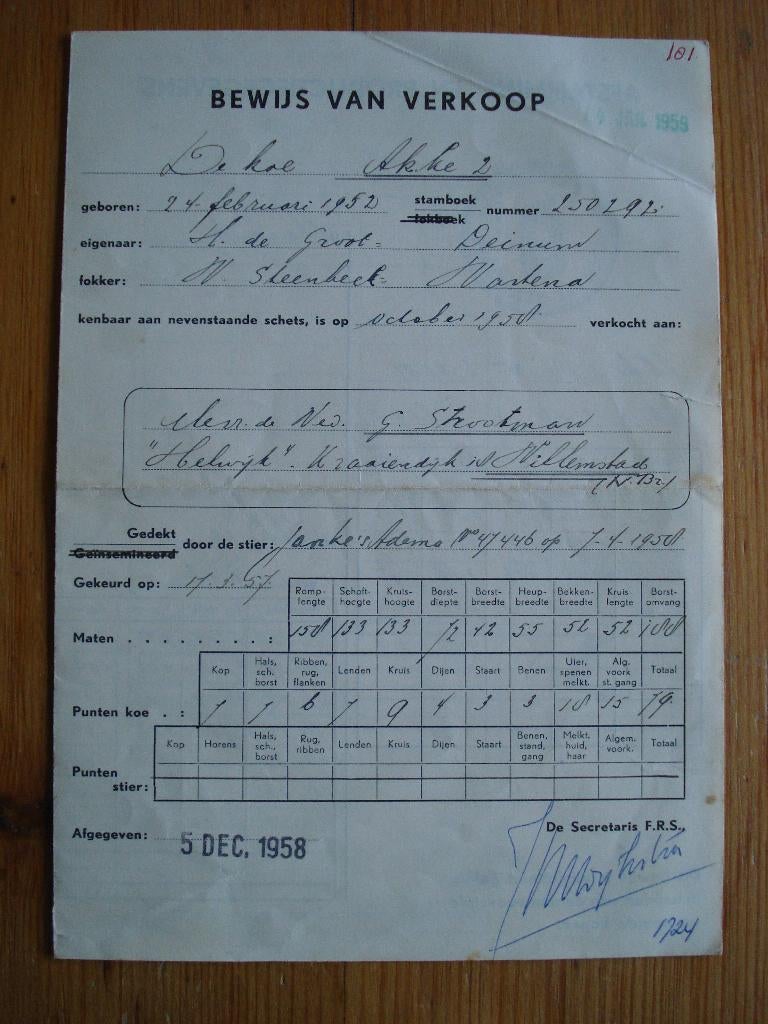 101
BEWIJS VAN VERKOOP
JAN. 1959
De koe Akke 2
geboren: 24 februari 1952 stamboek fokboek nummer 250292
eigenaar: H. de Groot = Deinum
fokker: W. Steenbeek = Wartena
kenbaar aan nevenstaande schets, is op october 1958 verkocht aan:
de Wed. G. Strootman
"Helwijk" Kraaiendijk Willemstad
(N. Br.)
Gedekt
Geïnsemineerd door de stier: Janke's Adema No 47446 op 7-4-1958
Gekeurd op: 17.3.57
Romp-lengte Schoft-hoogte Kruis-hoogte Borst-diepte Borst-breedte Heup-breedte Bekken-breedte Kruis lengte Borst-omvang
Maten . . . . . . . . : 158 133 133 72 42 55 52 52 188
Kop Hals, sch. borst Ribben, rug, flanken Lenden Kruis Dijen Staart Benen Uier, spenen melkt. Alg. voork st. gang Totaal
Punten koe . : 7 7 6 7 9 4 3 3 18 15 79
Kop Horens Hals, sch., borst Rug, ribben Lenden Kruis Dijen Staart Benen, stand, gang Melkt. huid, haar Algem. voork. Totaal
Punten
stier:
Afgegeven: 5 DEC. 1958
De Secretaris F.R.S.,
1724